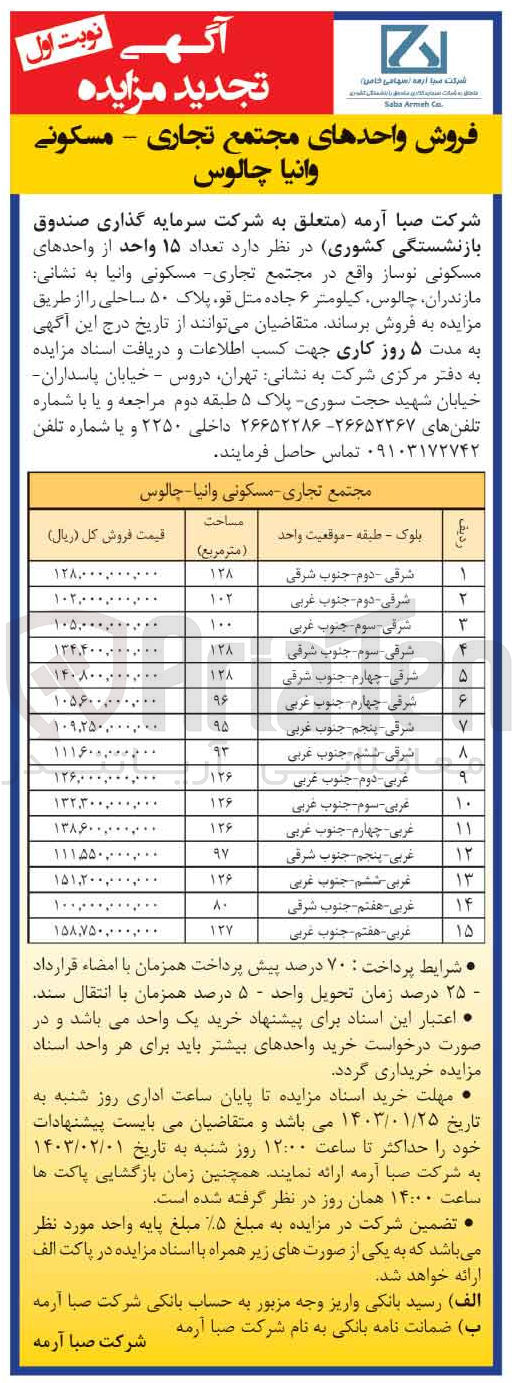 آگهی
تجدید مزایده
نوبت اول
شرکت صبا آرمه (سهامی خاص)
متعلق به شرکت سرمایه گذاری صندوق بازنشستگی کشوری
Saba Armeh Co.
فروش واحدهای مجتمع تجاری - مسکونی
وانیا چالوس
شرکت صبا آرمه (متعلق به شرکت سرمایه گذاری صندوق
بازنشستگی کشوری) در نظر دارد تعداد ۱۵ واحد از واحدهای
مسکونی نوساز واقع در مجتمع تجاری- مسکونی وانیا به نشانی:
مازندران، چالوس، کیلومتر ۶ جاده متل قو، پلاک ۵۰ ساحلی را از طریق
مزایده به فروش برساند. متقاضیان می‌توانند از تاریخ درج این آگهی
به مدت ۵ روز کاری جهت کسب اطلاعات و دریافت اسناد مزایده
به دفتر مرکزی شرکت به نشانی: تهران، دروس - خیابان پاسداران-
خیابان شهید حجت سوری- پلاک ۵ طبقه دوم مراجعه و یا با شماره
تلفن‌های ۲۶۶۵۲۳۶۷- ۲۶۶۵۲۲۸۶ داخلی ۲۲۵۰ و یا شماره تلفن
۰۹۱۰۳۱۷۲۷۴۲ تماس حاصل فرمایند.
مجتمع تجاری-مسکونی وانیا-چالوس
ردیف بلوک - طبقه -موقعیت واحد مساحت (مترمربع) قیمت فروش کل (ریال)
۱ شرقی -دوم-جنوب شرقی ۱۲۸ ۱۲۸,۰۰۰,۰۰۰,۰۰۰
۲ شرقی-دوم-جنوب غربی ۱۰۲ ۱۰۲,۰۰۰,۰۰۰,۰۰۰
۳ شرقی-سوم-جنوب غربی ۱۰۰ ۱۰۵,۰۰۰,۰۰۰,۰۰۰
۴ شرقی-سوم-جنوب شرقی ۱۲۸ ۱۳۴,۴۰۰,۰۰۰,۰۰۰
۵ شرقی-چهارم-جنوب شرقی ۱۲۸ ۱۴۰,۸۰۰,۰۰۰,۰۰۰
۶ شرقی-چهارم-جنوب غربی ۹۶ ۱۰۵,۶۰۰,۰۰۰,۰۰۰
۷ شرقی-پنجم-جنوب غربی ۹۵ ۱۰۹,۲۵۰,۰۰۰,۰۰۰
۸ شرقی-ششم-جنوب غربی ۹۳ ۱۱۱,۶۰۰,۰۰۰,۰۰۰
۹ غربی-دوم-جنوب غربی ۱۲۶ ۱۲۶,۰۰۰,۰۰۰,۰۰۰
۱۰ غربی-سوم-جنوب غربی ۱۲۶ ۱۳۲,۳۰۰,۰۰۰,۰۰۰
۱۱ غربی-چهارم-جنوب غربی ۱۲۶ ۱۳۸,۶۰۰,۰۰۰,۰۰۰
۱۲ غربی-پنجم-جنوب شرقی ۹۷ ۱۱۱,۵۵۰,۰۰۰,۰۰۰
۱۳ غربی-ششم-جنوب غربی ۱۲۶ ۱۵۱,۲۰۰,۰۰۰,۰۰۰
۱۴ غربی-هفتم-جنوب شرقی ۸۰ ۱۰۰,۰۰۰,۰۰۰,۰۰۰
۱۵ غربی-هفتم-جنوب غربی ۱۲۷ ۱۵۸,۷۵۰,۰۰۰,۰۰۰
• شرایط پرداخت : ۷۰ درصد پیش پرداخت همزمان با امضاء قرارداد
- ۲۵ درصد زمان تحویل واحد - ۵ درصد همزمان با انتقال سند.
• اعتبار این اسناد برای پیشنهاد خرید یک واحد می باشد و در
صورت درخواست خرید واحدهای بیشتر باید برای هر واحد اسناد
مزایده خریداری گردد.
• مهلت خرید اسناد مزایده تا پایان ساعت اداری روز شنبه به
تاریخ ۱۴۰۳/۰۱/۲۵ می باشد و متقاضیان می بایست پیشنهادات
خود را حداکثر تا ساعت ۱۲:۰۰ روز شنبه به تاریخ ۱۴۰۳/۰۲/۰۱
به شرکت صبا آرمه ارائه نمایند. همچنین زمان بازگشایی پاکت ها
ساعت ۱۴:۰۰ همان روز در نظر گرفته شده است.
• تضمین شرکت در مزایده به مبلغ ۵٪ مبلغ پایه واحد مورد نظر
می‌باشد که به یکی از صورت های زیر همراه با اسناد مزایده در پاکت الف
ارائه خواهد شد.
الف) رسید بانکی واریز وجه مزبور به حساب بانکی شرکت صبا آرمه
ب) ضمانت نامه بانکی به نام شرکت صبا آرمه
شرکت صبا آرمه